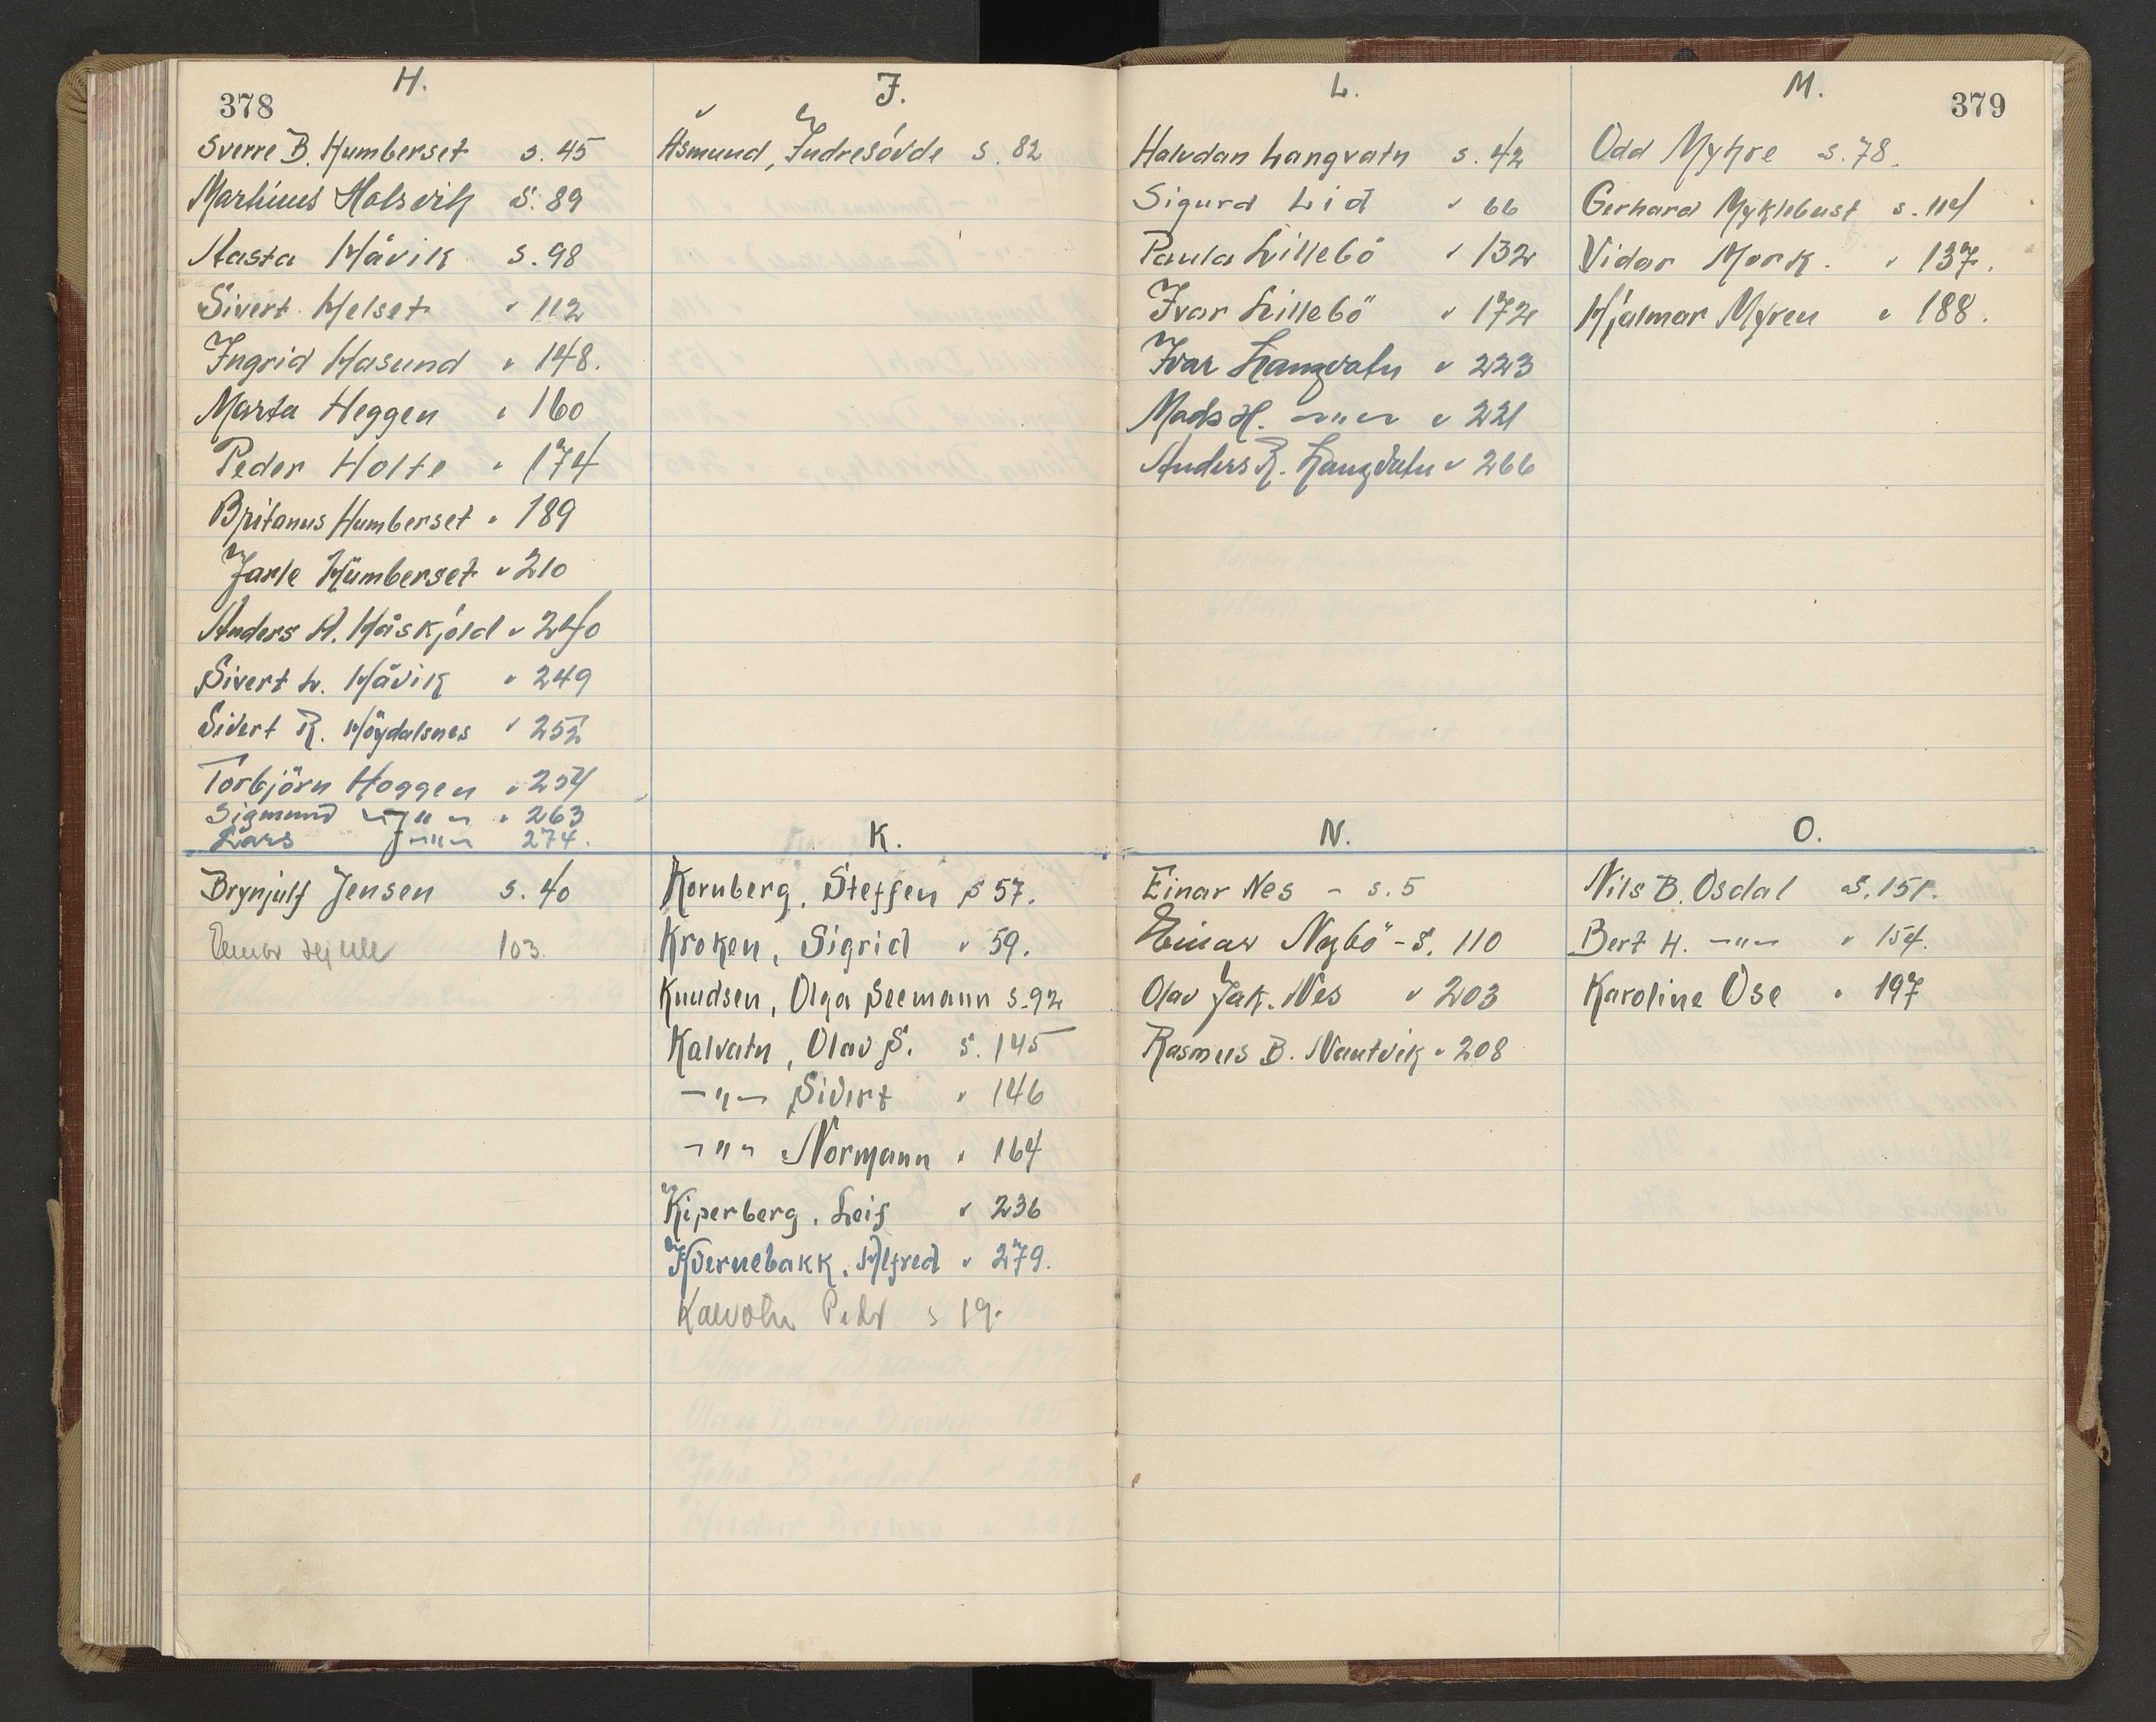 378
H.
Sverre B. Humberset s. 45
Martinus Holsvik s. 89
Aasta Håvik s. 98
Sivert Helset " 112
Ingrid Hasund " 148.
Marta Heggen " 160
Peder Holte " 174
Britanus Humberset " 189
Jarle Humberset " 210
Anders A. Håskjold " 240
Sivert L. Håvik " 249
Sivert R. Höydalsnes " 252
Torbjörn Hoggen " 254
Sigmund —"— " 263
Lars —"— 274.
Brynjulf Jensen s. 40
103.
I.
Åsmund, Indresövde s. 82
K.
Kornberg, Steffen s 57.
Kroken, Sigrid " 59.
Knudsen, Olga Seemann s. 92
Kalvatn, Olav S. s. 145
—"— Sivert " 146
—"— Normann " 164
Kiperberg, Leif " 236
Kvernebakk, Alfred " 279.
Kalvatn Peder s 19.
379
L.
Halvdan Langvatn s. 42
Sigurd Lid " 66
Paula Lillebö " 132
Ivar Lillebö " 172
Ivar Langvatn " 223
Mads H. —"— " 221
Anders R. Langvatn " 266
M.
Odd Myhre s. 78.
Gerhard Myklebust s. 114
Vidar Mork. " 137.
Hjalmar Myren " 188.
N.
Einar Nes - s. 5
Einar Nybö - s. 110
Olav Jak. Nes " 203
Rasmus B. Nautvik " 208
O.
Nils B. Osdal s. 151.
Bert H. —"— " 154.
Karoline Ose " 197